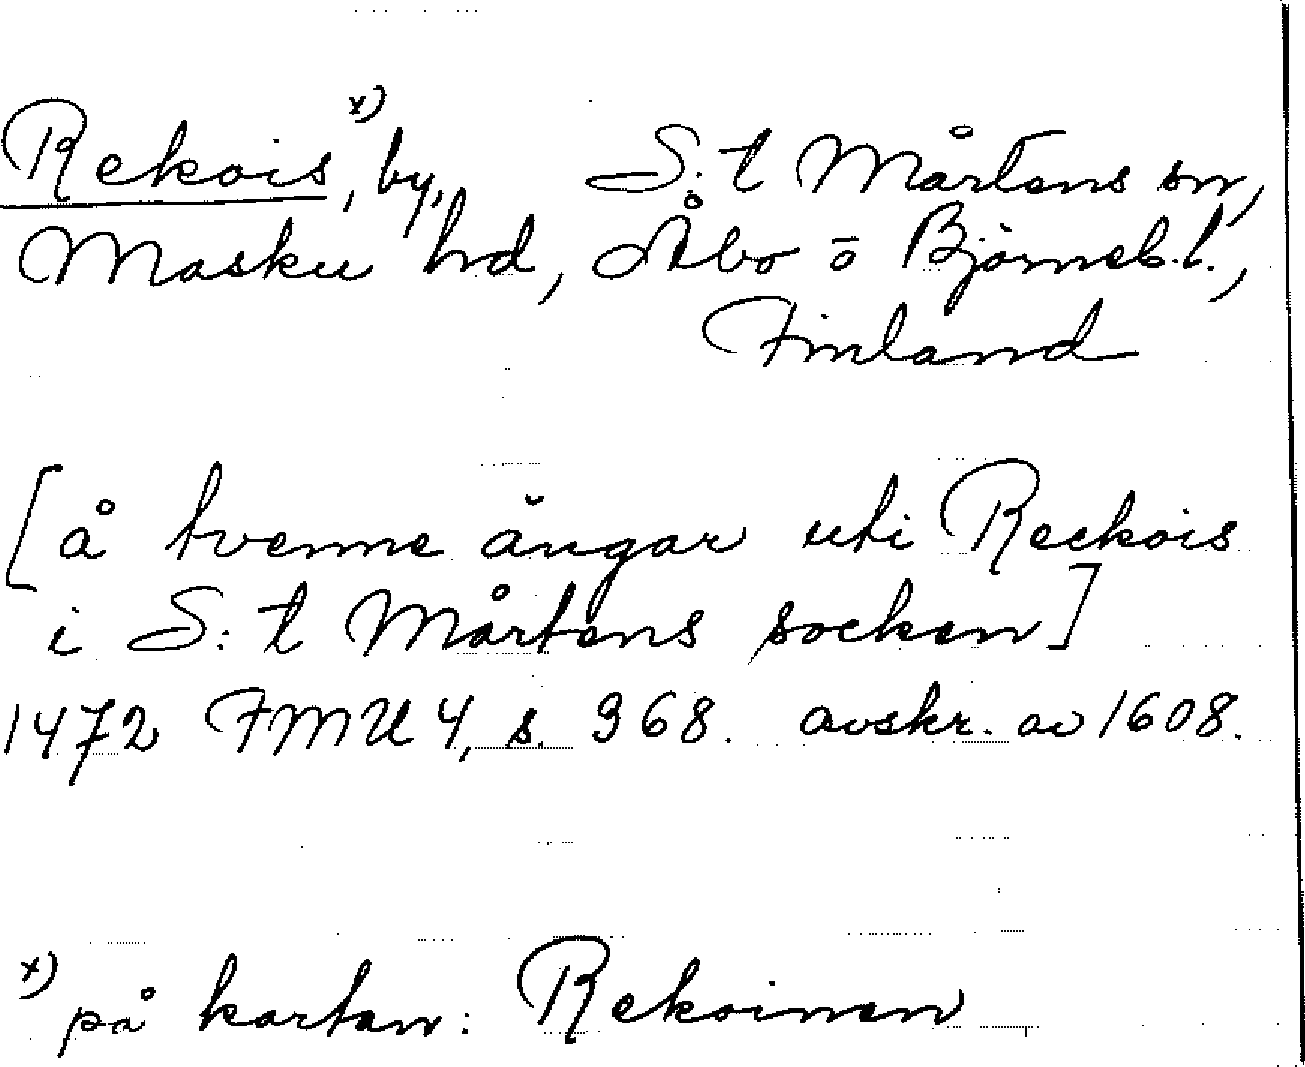 Rekois, x) by, S:t Mårtens sn,
Masku hd, Åbo o Björneb.l.,
Finland
[å tvenne ängar uti Reckois
i S:t Mårtens socken]
1472 FMU 4, s. 368. avskr. av 1608.
x) på kartan: Rekoinen